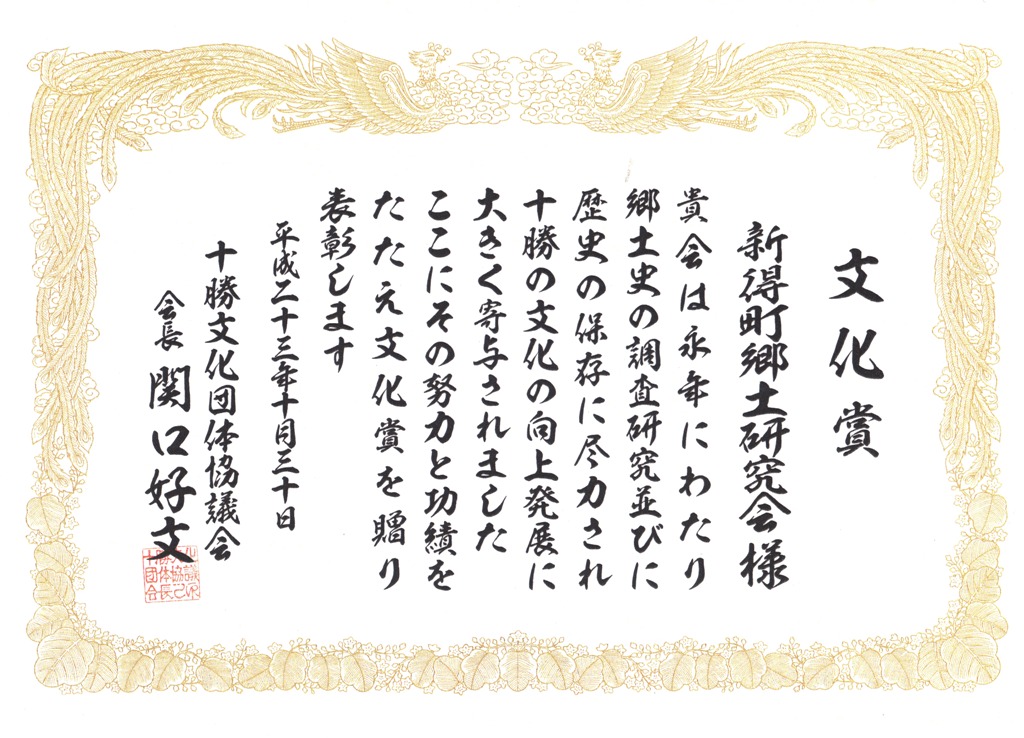 文化賞
新得町郷土研究会様
貴会は永年にわたり
郷土史の調査研究並びに
歴史の保存に尽力され
十勝の文化の向上発展に
大きく寄与されました
ここにその努力と功績を
たたえ文化賞を贈り
表彰します
平成二十三年十月三十日
十勝文化団体協議会
会長 関口好文